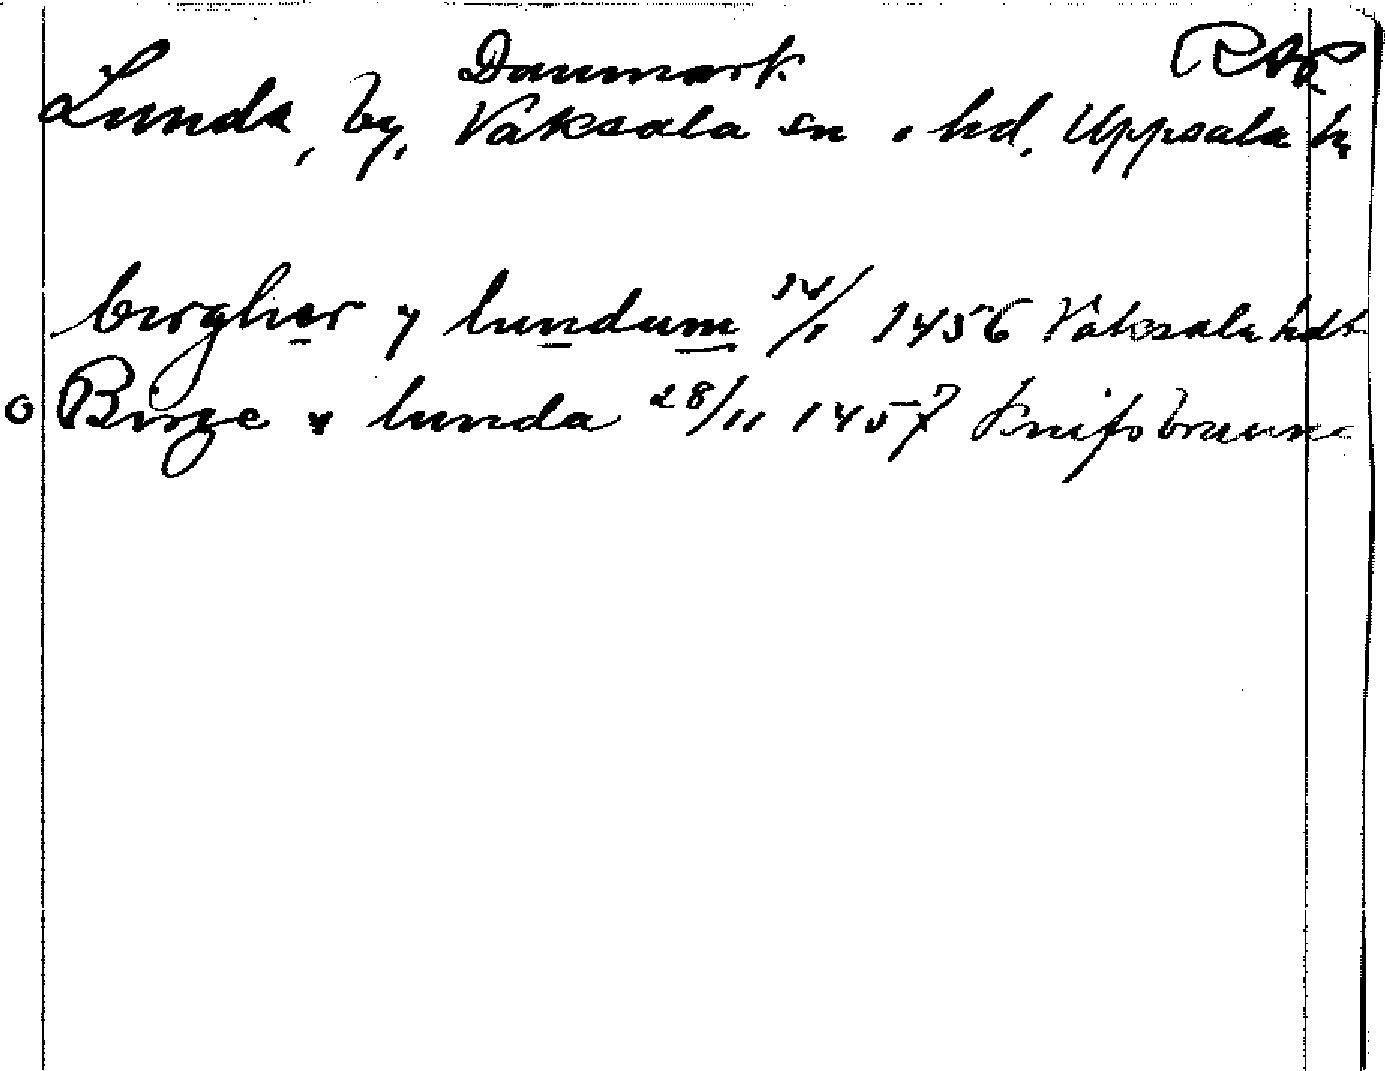 Danmark RAP
Lunda, by, Vaksala sn o hd, Uppsala l.
birgher y lundum 14/1 1456 Vaksala hdt
o Birge y lunda 28/11 1457 Knifsbrunne